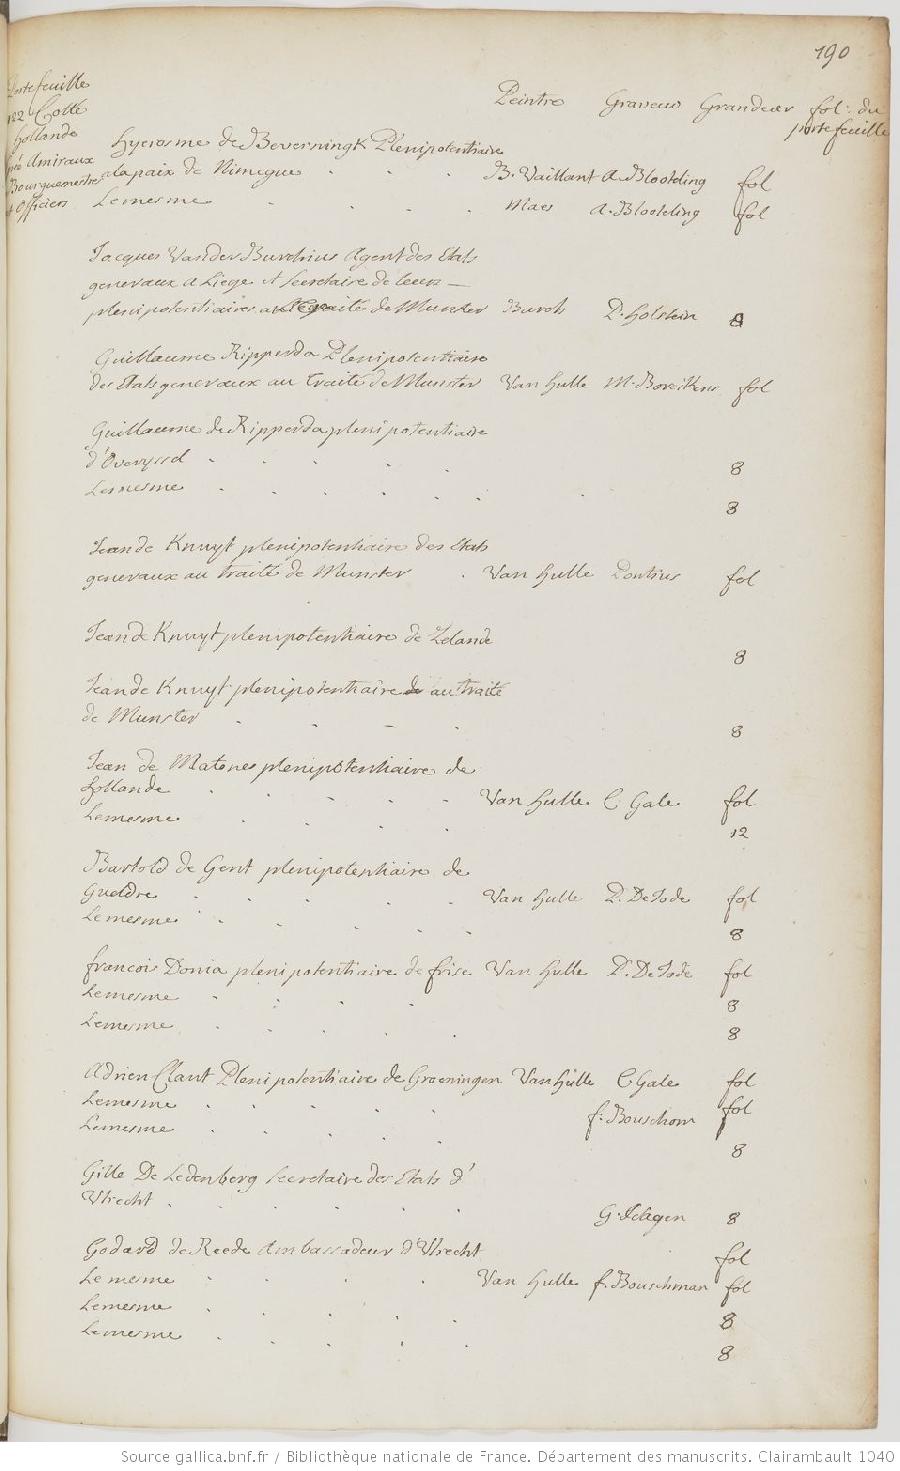 190
Portefeuille
122 Cotté
hollande
Amiraux
Bourguemestres
et Officiers
Peintre Graveur Grandeur fol: du
portefeuille
Hyerosme de Beverningk Plenipotentiaire
a la paix de Nimegue . . . B. Vaillant A. Blooteling fol
Le mesme . . . . Maes A. Blooteling fol
Jacques Vander Burchius Agent des Etats
generaux a Liege et Secretaire de leurs
plenipotentiaires au traité de Munster Burch P. Holstein 8
Guillaume Ripperda Plenipotentiaire
des Etats generaux au traité de Munster Van hulle M. Borrekens fol
Guillaume de Ripperda plenipotentiaire
d'Overyssel . . . . . 8
Le mesme . . . . . . 8
Jean de Knuyt plenipotentiaire des Etats
generaux au traité de Munster . Van hulle Pontius fol
Jean de Knuyt plenipotentiaire de Zelande
8
Jean de Knuyt plenipotentiaire au traité
de Munster . . . . 8
Jean de Matenes plenipotentiaire de
hollande . . . . . Van hulle C Gale fol
Le mesme . . . . 12
Bartold de Gent plenipotentiaire de
Gueldre . . . . . Van hulle P. De Jode fol
Le mesme . . . . . 8
francois Donia plenipotentiaire de frise Van hulle P. De Jode fol
Le mesme . . . . 8
Le mesme . . . . 8
Adrien Clant Plenipotentiaire de Groeningen Van hulle C Gale fol
Le mesme . . . . . f. Bouschom fol
Le mesme . . . . . 8
Gille De Ledenberg Secretaire des Etats d'
Utrecht . . . . . G. 8
Godard de Reede Ambassadeur d'Utrecht fol
Le mesme . . . . Van hulle f. Bouschman fol
Le mesme . . . . 8
Le mesme . . . . 8
Source gallica.bnf.fr / Bibliothèque nationale de France. Département des manuscrits. Clairambault 1040